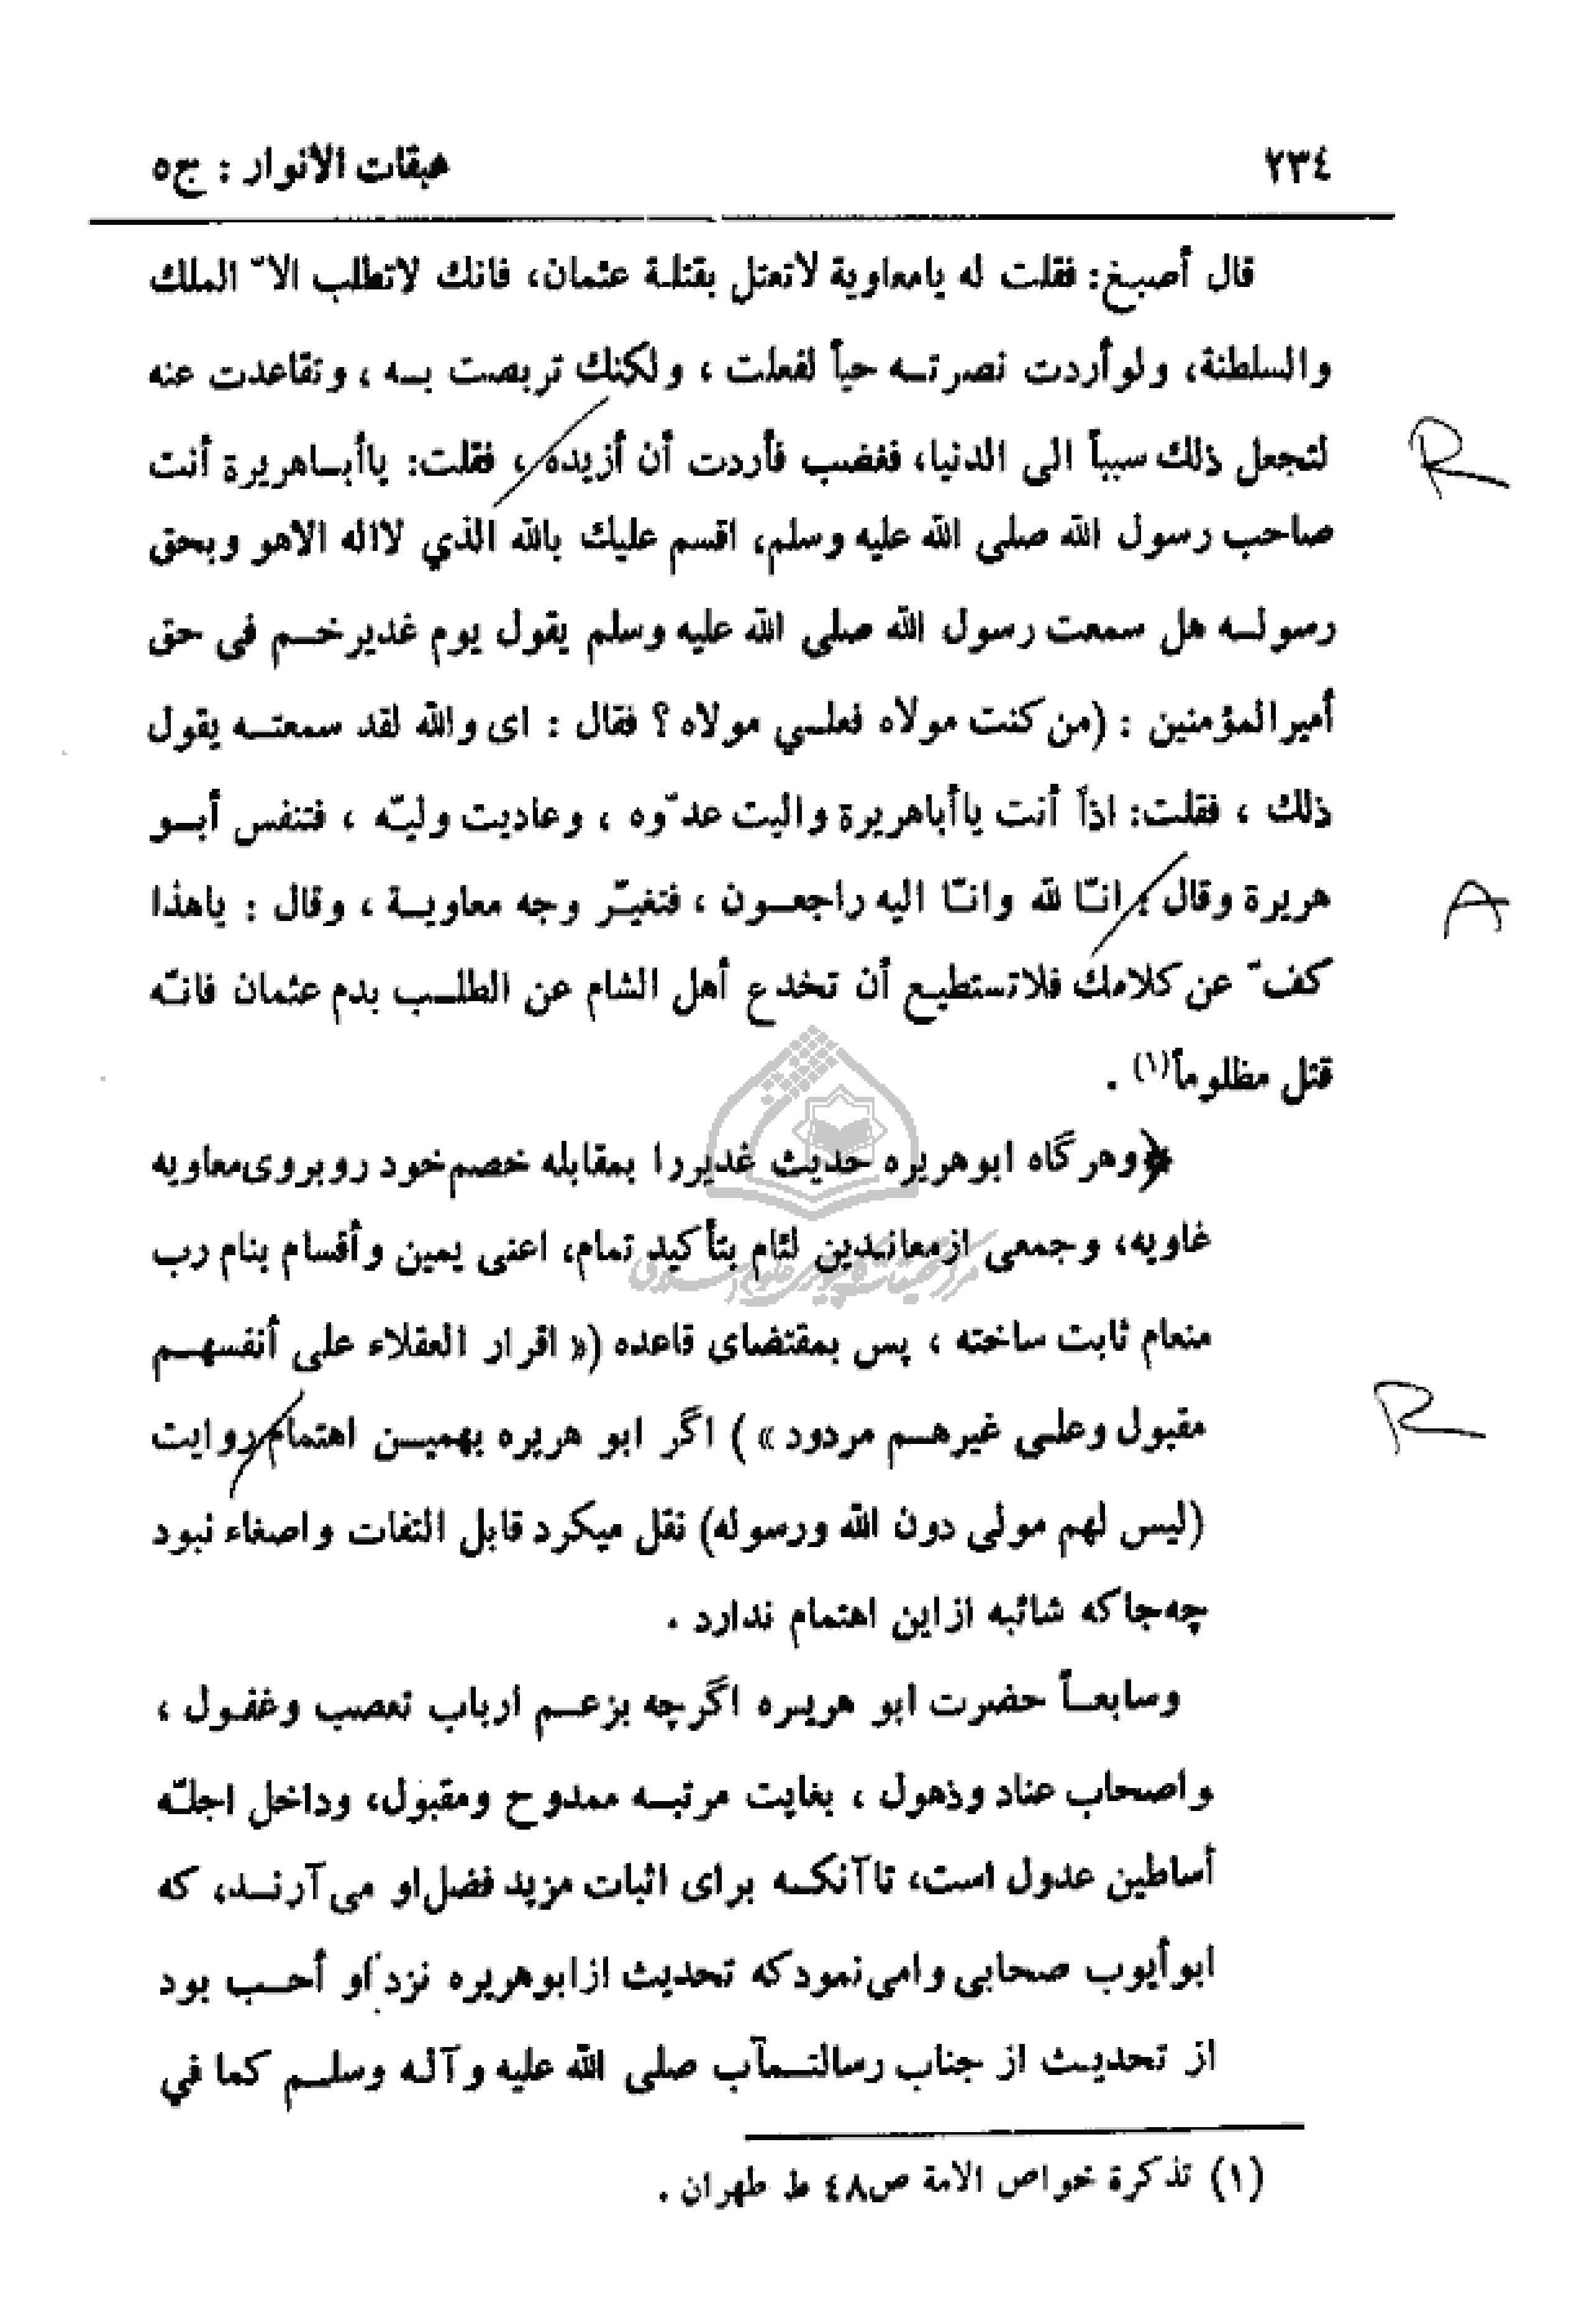 ٢٣٤
عبقات الانوار : ج٥
قال أصبـغ: فقلت له يامعاوية لاتعتل بقتلـة عثمان، فانك لاتطلب الاّ الملك
والسلطنة، ولوأردت نصرتـه حياً لفعلت ، ولكنك تربصت بـه ، وتقاعدت عنه
لتجعل ذلك سبباً الى الدنيا، فغضب فأردت أن أزيده ، فقلت: ياأبـاهريرة أنت
R
صاحب رسول الله صلى الله عليه وسلم، اقسم عليك بالله الذي لااله الاهو وبحق
رسولـه هل سمعت رسول الله صلى الله عليه وسلم يقول يوم غديرخـم فى حق
أميرالمؤمنين : (من كنت مولاه فعلـي مولاه ؟ فقال : اى والله لقد سمعتـه يقول
ذلك ، فقلت: اذاً أنت ياأباهريرة واليت عدّوه ، وعاديت وليّـه ، فتنفس أبـو
هريرة وقال : انّـا لله وانّـا اليه راجعـون ، فتغيّـر وجه معاويـة ، وقال : ياهذا
A
كفّ عن كلامك فلاتستطيـع أن تخدع أهل الشام عن الطلـب بدم عثمان فانّـه
قتل مظلوماً(١) .
﴿وهرگاه ابوهريره حديث غديررا بمقابله خصم خود روبروى معاويه
غاويه، وجمعى ازمعانـدين لئام بتأكيد تمام، اعنى يمين وأقسام بنام رب
منعام ثابت ساخته ، پس بمقتضاى قاعده («اقرار العقلاء على أنفسهـم
مقبول وعلـى غيرهـم مردود») اگر ابو هريره بهميـن اهتمام روايت
R
(ليس لهم مولى دون الله ورسوله) نقل ميكرد قابل التفات واصغاء نبود
چه‌جاكه شائبه ازاين اهتمام ندارد .
وسابعـاً حضرت ابو هريره اگرچه بزعـم ارباب تعصب وغفـول ،
واصحاب عناد وذهول ، بغايت مرتبـه ممدوح ومقبول، وداخل اجلّـه
أساطين عدول است، تاآنكـه براى اثبات مزيد فضل او مى‌آرنـد، كه
ابوأيوب صحابى وامى‌نمودكه تحديث ازابوهريره نزد او أحـب بود
از تحديـث از جناب رسالتـمآب صلى الله عليه وآلـه وسلـم كما في
(١) تذكرة خواص الامة ص٤٨ ط طهران .